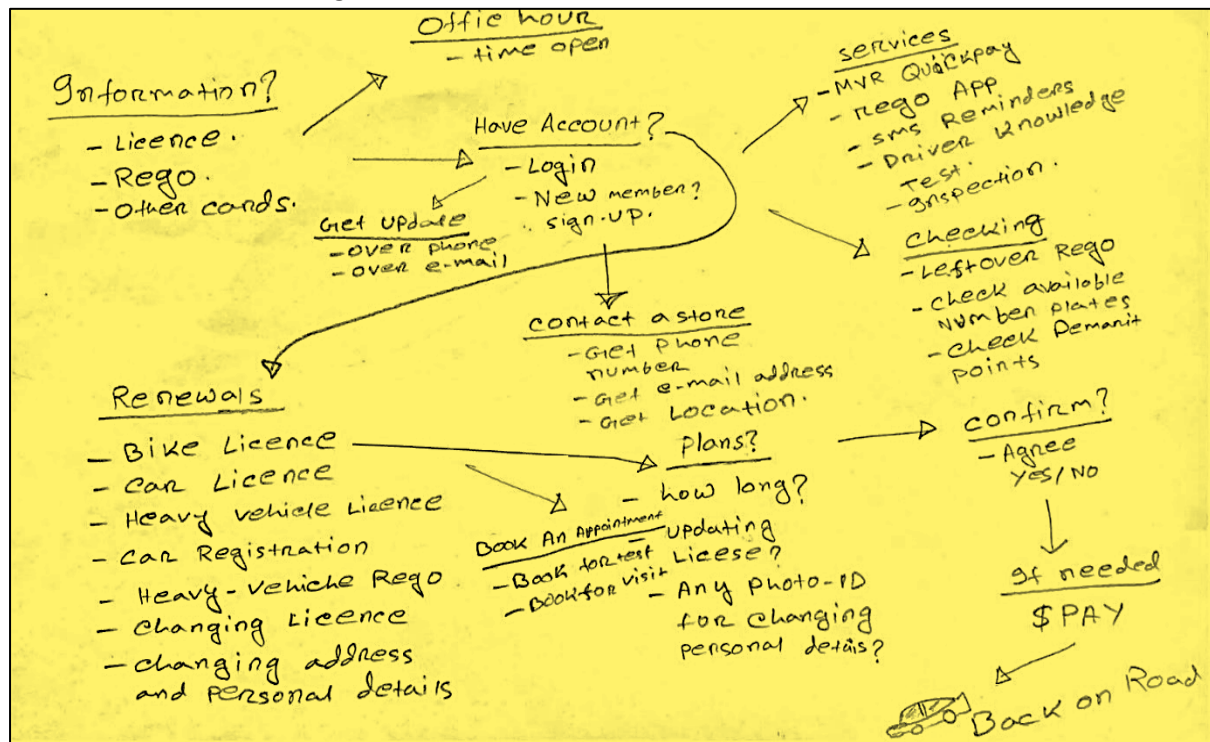 Offic hour
- time open
Information?
- Licence.
- Rego.
- Other cards.
Have Account?
- Login
- New member?
sign-up.
Get update
- over phone
- over e-mail
services
- MVR Quickpay
- Rego App
- SMS Reminders
- Driver Knowledge
Test.
- Inspection.
Checking
- Leftover Rego
- Check available
Number plates
- Check Demarit
points
Contact a store
- Get phone
number
- Get e-mail address
- Get Location.
Renewals
- Bike Licence
- Car Licence
- Heavy vehicle Licence
- Car Registration
- Heavy-vehiche Rego
- Changing Licence
- Changing address
and personal details
Plans?
- how long?
- updating
Licese?
- Any Photo-ID
for changing
personal detais?
Book An Appointment
- Book for test
- Book for visit
Confirm?
- Agree
Yes/No
If needed
$ PAY
Back on Road